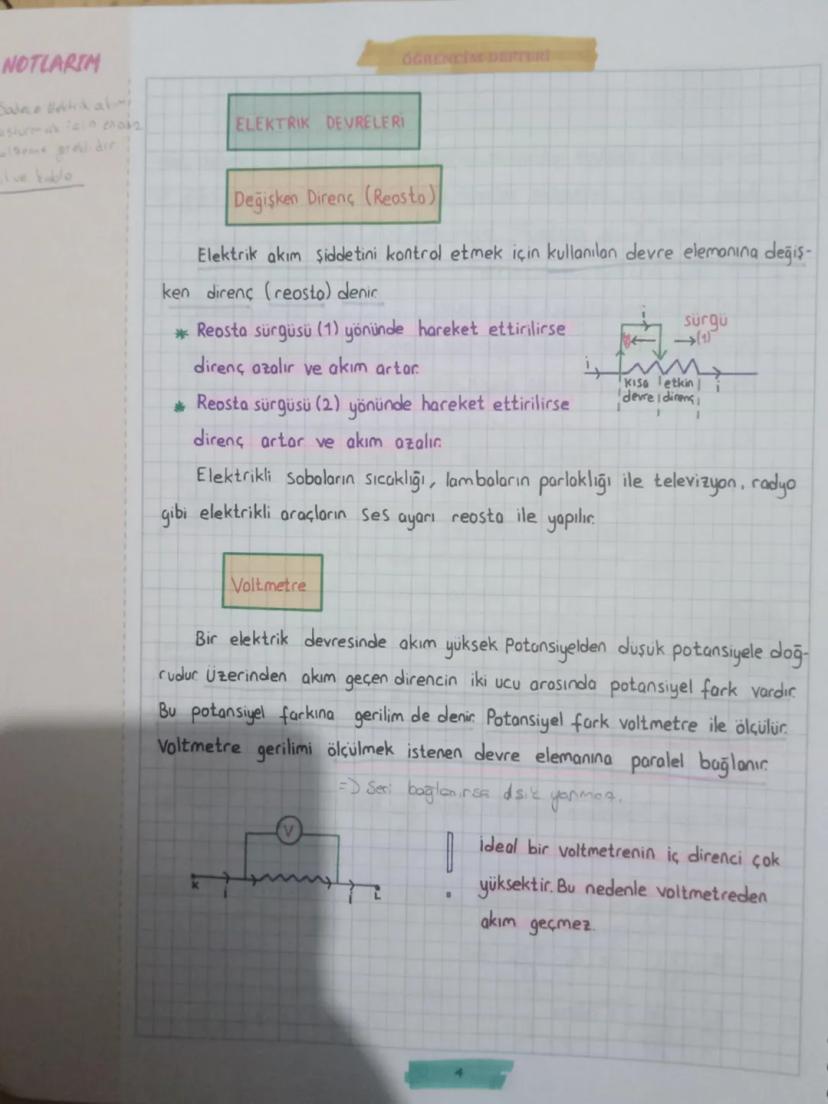 NOTLARIM
ÖĞRENCİM DEFTERİ
ELEKTRİK DEVRELERİ
Değişken Direnç (Reosto)
Elektrik akım şiddetini kontrol etmek için kullanılan devre elemanına değiş-
ken direnç (reosto) denir.
* Reosta sürgüsü (1) yönünde hareket ettirilirse
direnç azalır ve akım artar.
* Reosta sürgüsü (2) yönünde hareket ettirilirse
direnç artar ve akım azalır.
i sürgü
(1)
i kısa etkin i
devre direnç
Elektrikli sobaların sıcaklığı, lambaların parlaklığı ile televizyon, radyo
gibi elektrikli araçların ses ayarı reosta ile yapılır.
Voltmetre
Bir elektrik devresinde akım yüksek Potansiyelden düşük potansiyele doğ-
rudur. Üzerinden akım geçen direncin iki ucu arasında potansiyel fark vardır.
Bu potansiyel farkına gerilim de denir. Potansiyel fark voltmetre ile ölçülür.
Voltmetre gerilimi ölçülmek istenen devre elemanına paralel bağlanır.
=> Seri bağlanırsa yanmaz.
V
K i i L
! ideal bir voltmetrenin iç direnci çok
yüksektir. Bu nedenle voltmetreden
akım geçmez.
4